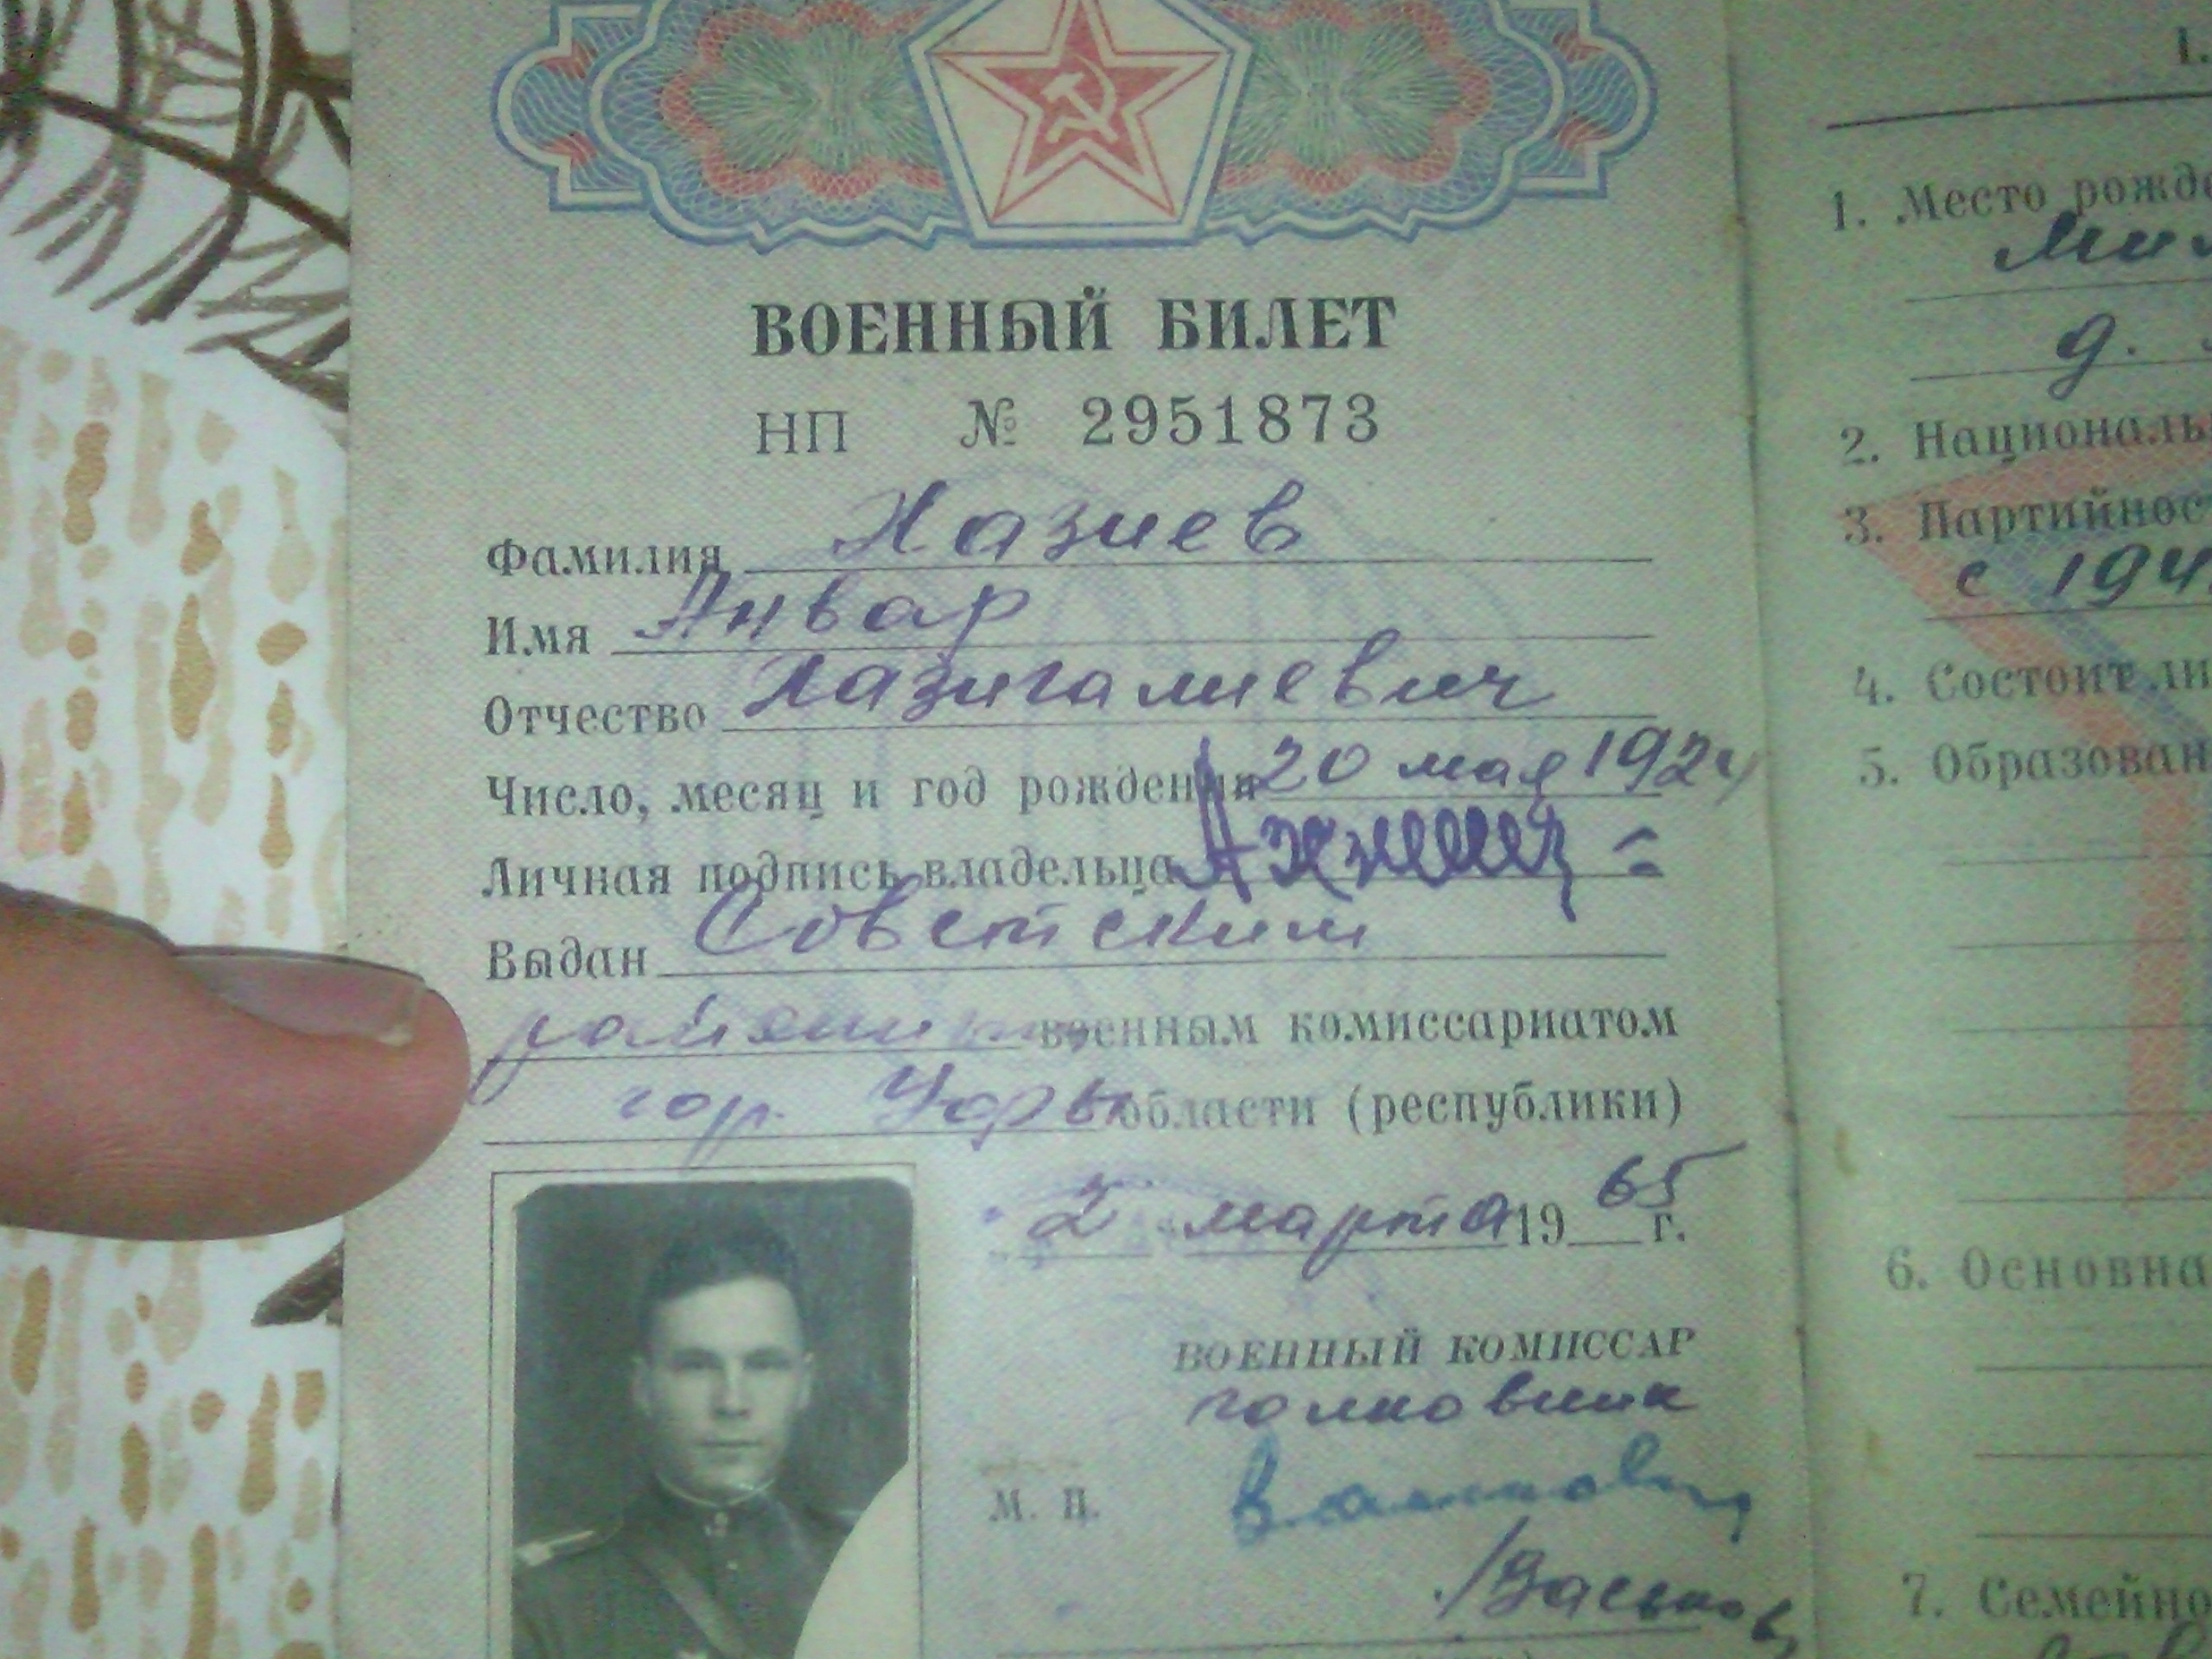 ВОЕННЫЙ БИЛЕТ
НП № 2951873
Фамилия Хазиев
Имя Анвар
Отчество Хазигалиевич
Число, месяц и год рождения 20 мая 1924
Личная подпись владельца
Выдан Советским
районным военным комиссариатом
гор. Уфы области (республики)
2 марта 1965 г.
ВОЕННЫЙ КОМИССАР
полковник
М. П.
1.
1. Место рожде
д.
2. Националь
3. Партийнос
с 194
4. Состоит ли
5. Образован
6. Основна
7. Семейно